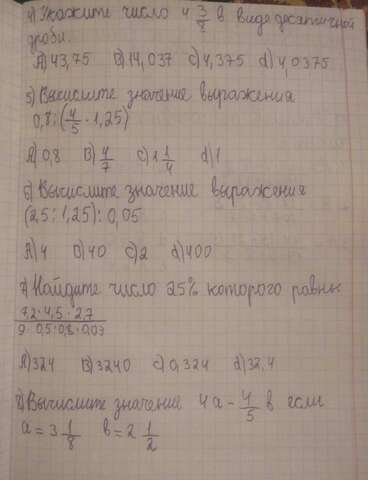 4) Укажите число 4 3/8 в виде десятичной
дроби.
А) 43,75 В) 14,037 с) 4,375 d) 4,0375
5) Вычислите значение выражения
0,8 : (4/5 · 1,25)
А) 0,8 В) 4/7 с) 1 1/4 d) 1
6) Вычислите значение выражения
(2,5 : 1,25) : 0,05
А) 4 В) 40 с) 2 d) 400
7) Найдите число 25% которого равны
7,2 · 4,5 · 2,7
9 · 0,5 · 0,8 · 0,03
А) 324 В) 3240 с) 0,324 d) 32,4
8) Вычислите значение 4а - 4/5 в если
а = 3 1/8 в = 2 1/2